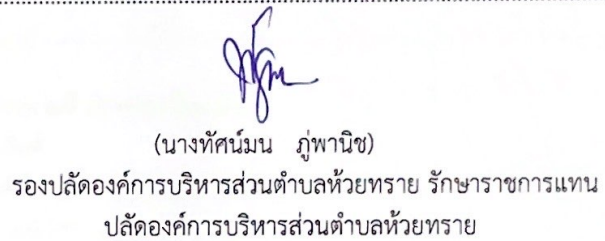 (นางทัศน์มน ภู่พานิช)
รองปลัดองค์การบริหารส่วนตำบลห้วยทราย รักษาราชการแทน
ปลัดองค์การบริหารส่วนตำบลห้วยทราย